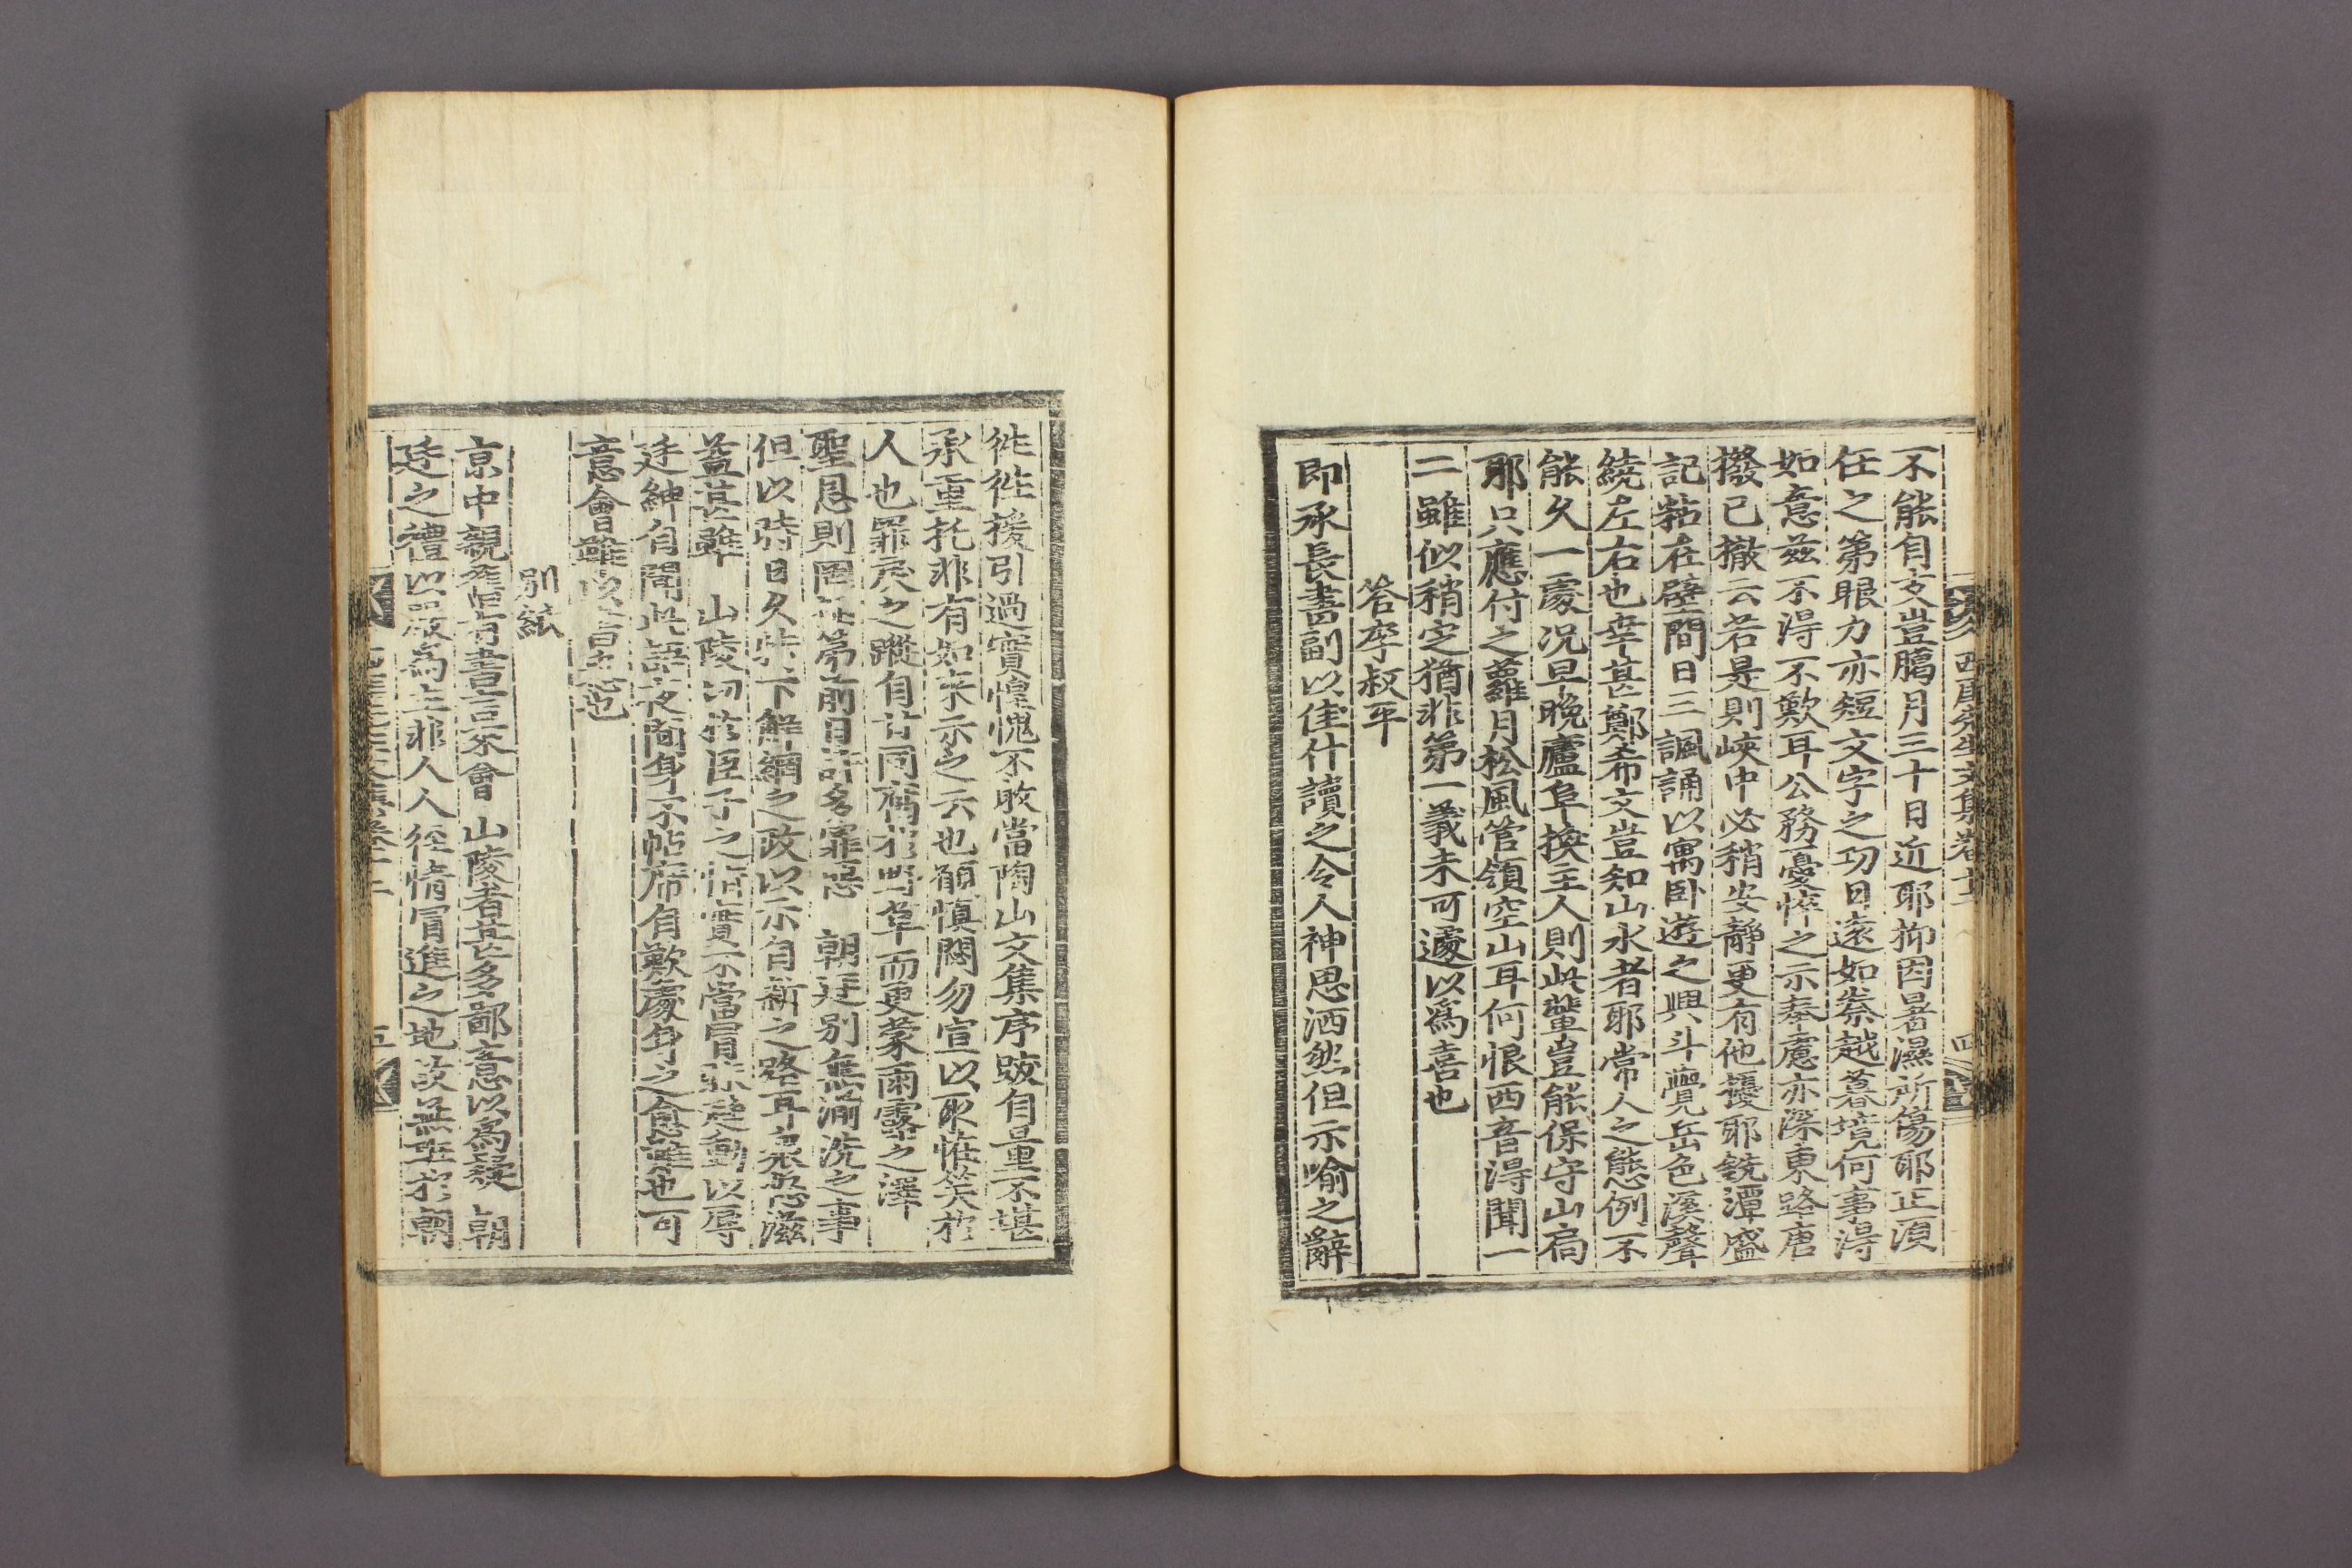 西厓先生文集卷十二
四
不能自支豈臈月三十日近耶抑因暑濕所傷耶正須
任之第眼力亦短文字之功日遠如素越暮境何事得
如意玆不得不歎耳公務憂悴之示奉慮亦深東路唐
撥已撤云若是則峽中必稍安靜更有他擾耶鏡潭盛
記粘在壁間日三諷誦以寓卧遊之興斗覺岳色溪聲
繞左右也幸甚鄭希文豈知山水者耶常人之態例不
能久一處况旦晩廬阜換主人則此輩豈能保守山扃
耶只應付之蘿月松風管領空山耳何恨西音得聞一
二雖似稍定猶非第一義未可遽以爲喜也
答李叔平
即承長書副以佳什讀之令人神思洒然但示喩之辭
徃徃援引過實惶愧不敢當陶山文集序跋自量不堪
承重托非有如來示之云也願愼閟勿宣以取怪笑於
人也罪戾之蹤自甘同腐於野草而更蒙雨露之澤
聖恩則罔極第前目許多罪惡 朝廷別無湔洗之事
但以時日久特下觧網之政以示自新之路耳衆怒滋
益甚雖 山陵切於臣子之情實不當冒昧走動以辱
廷紳自聞此語夜間身不帖席自歎處身之愈難也可
意會難以言㫖也
別紙
京中親舊有書言不會 山陵者甚多鄙意以爲疑 朝
廷之禮以嚴爲主非人人徑情冒進之地故無班於朝
西厓先生文集卷十二
五